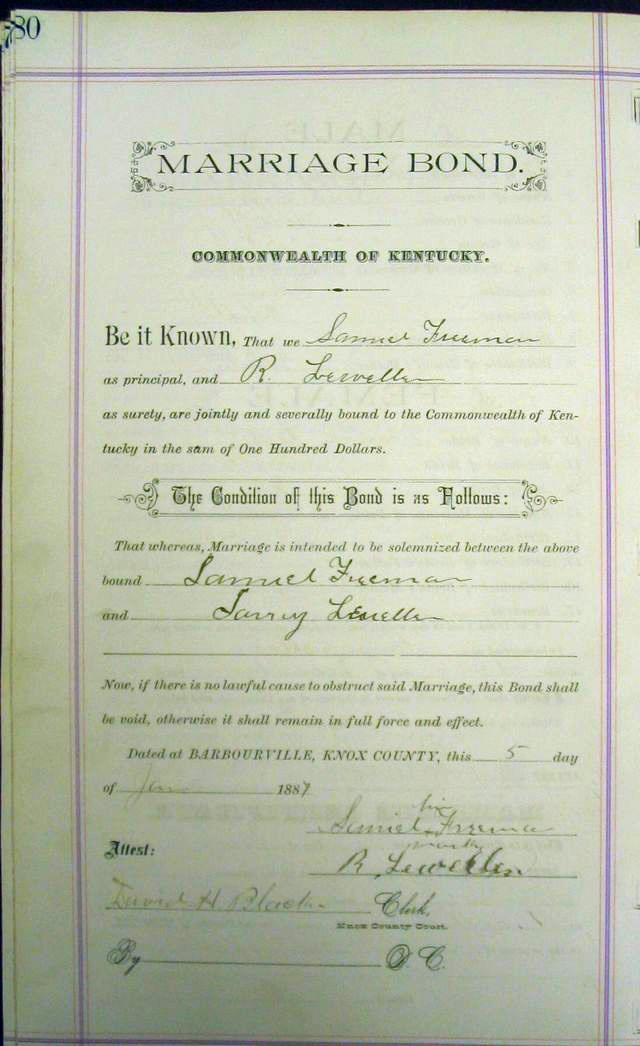 80
MARRIAGE BOND.
COMMONWEALTH OF KENTUCKY.
Be it Known, That we Samuel Freeman
as principal, and R. Lewellen
as surety, are jointly and severally bound to the Commonwealth of Ken-
tucky in the sum of One Hundred Dollars.
The Condition of this Bond is as Follows:
That whereas, Marriage is intended to be solemnized between the above
bound Samuel Freeman
and Lewellen
Now, if there is no lawful cause to obstruct said Marriage, this Bond shall
be void, otherwise it shall remain in full force and effect.
Dated at BARBOURVILLE, KNOX COUNTY, this 5 day
of Jan 1887
his
Samuel x Freeman
mark
Attest:
R. Lewellen
David H Black Clerk,
Knox County Court.
By D. C.